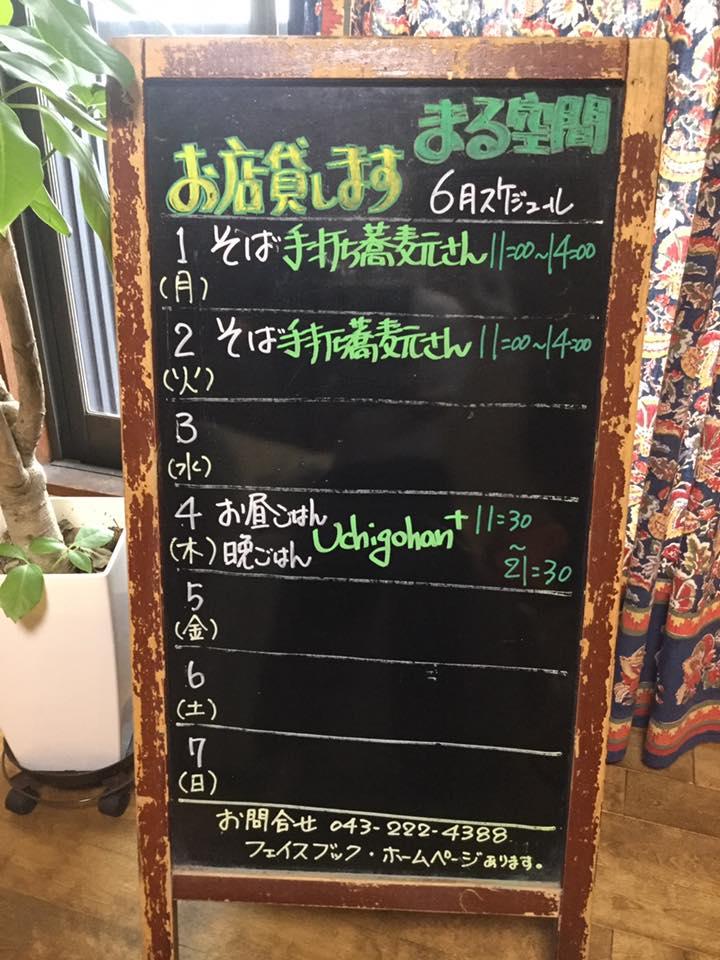 まる空間
お店貸します 6月スケジュール
1 そば 手打ち蕎麦元さん 11:00~14:00
(月)
2 そば 手打ち蕎麦元さん 11:00~14:00
(火)
3
(水)
4 お昼ごはん Uchigohan+ 11:30
(木) 晩ごはん ~21:30
5
(金)
6
(土)
7
(日)
お問合せ 043-222-4388
フェイスブック・ホームページあります。